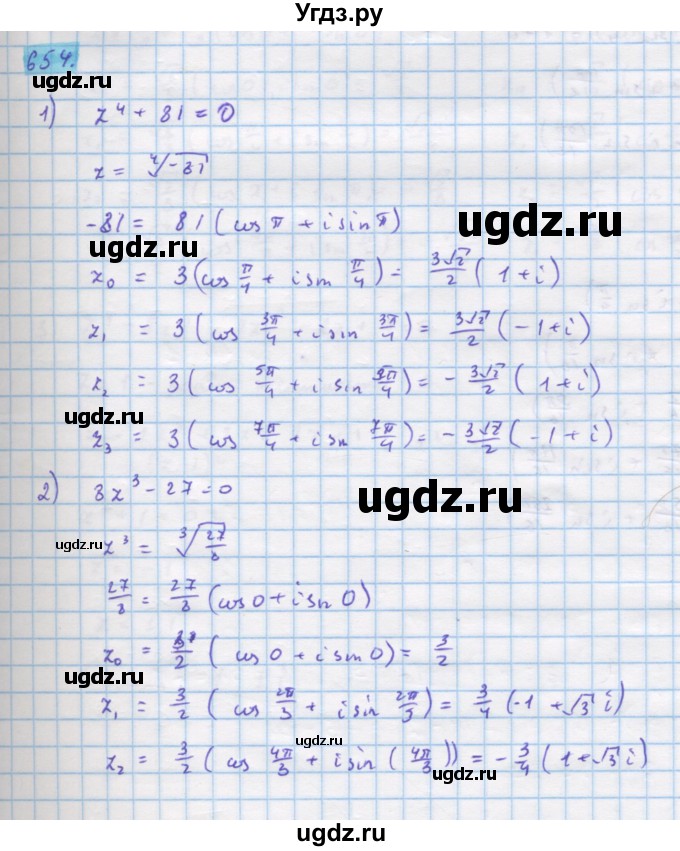 Угдз.ру
654.
ugdz.ru ugdz.ru
1) z⁴ + 81 = 0
z = ⁴√-81
-81 = 81 ( cos π + i sin π )
ugdz.ru
ugdz.ru
z₀ = 3 ( cos π/4 + i sin π/4 ) = 3√2/2 ( 1 + i )
z₁ = 3 ( cos 3π/4 + i sin 3π/4 ) = 3√2/2 ( -1 + i )
z₂ = 3 ( cos 5π/4 + i sin 5π/4 ) = - 3√2/2 ( 1 + i )
ugdz.ru
z₃ = 3 ( cos 7π/4 + i sin 7π/4 ) = - 3√2/2 ( -1 + i )
2) 8z³ - 27 = 0
ugdz.ru
ugdz.ru z³ = ³√27/8
ugdz.ru
27/8 = 27/8 ( cos 0 + i sin 0 )
z₀ = 3/2 ( cos 0 + i sin 0 ) = 3/2
ugdz.ru
z₁ = 3/2 ( cos 2π/3 + i sin 2π/3 ) = 3/4 ( -1 + √3 i )
ugdz.ru
z₂ = 3/2 ( cos 4π/3 + i sin ( 4π/3 )) = - 3/4 ( 1 + √3 i )
ugdz.ru